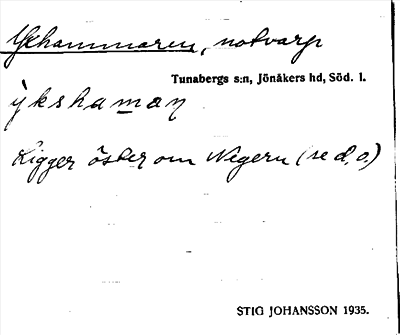 Ykhammaren, notvarp
Tunabergs s:n, Jönåkers hd, Söd. l.
ỳkshaman
Ligger öster om Negern (se d. o.)
STIG JOHANSSON 1935.